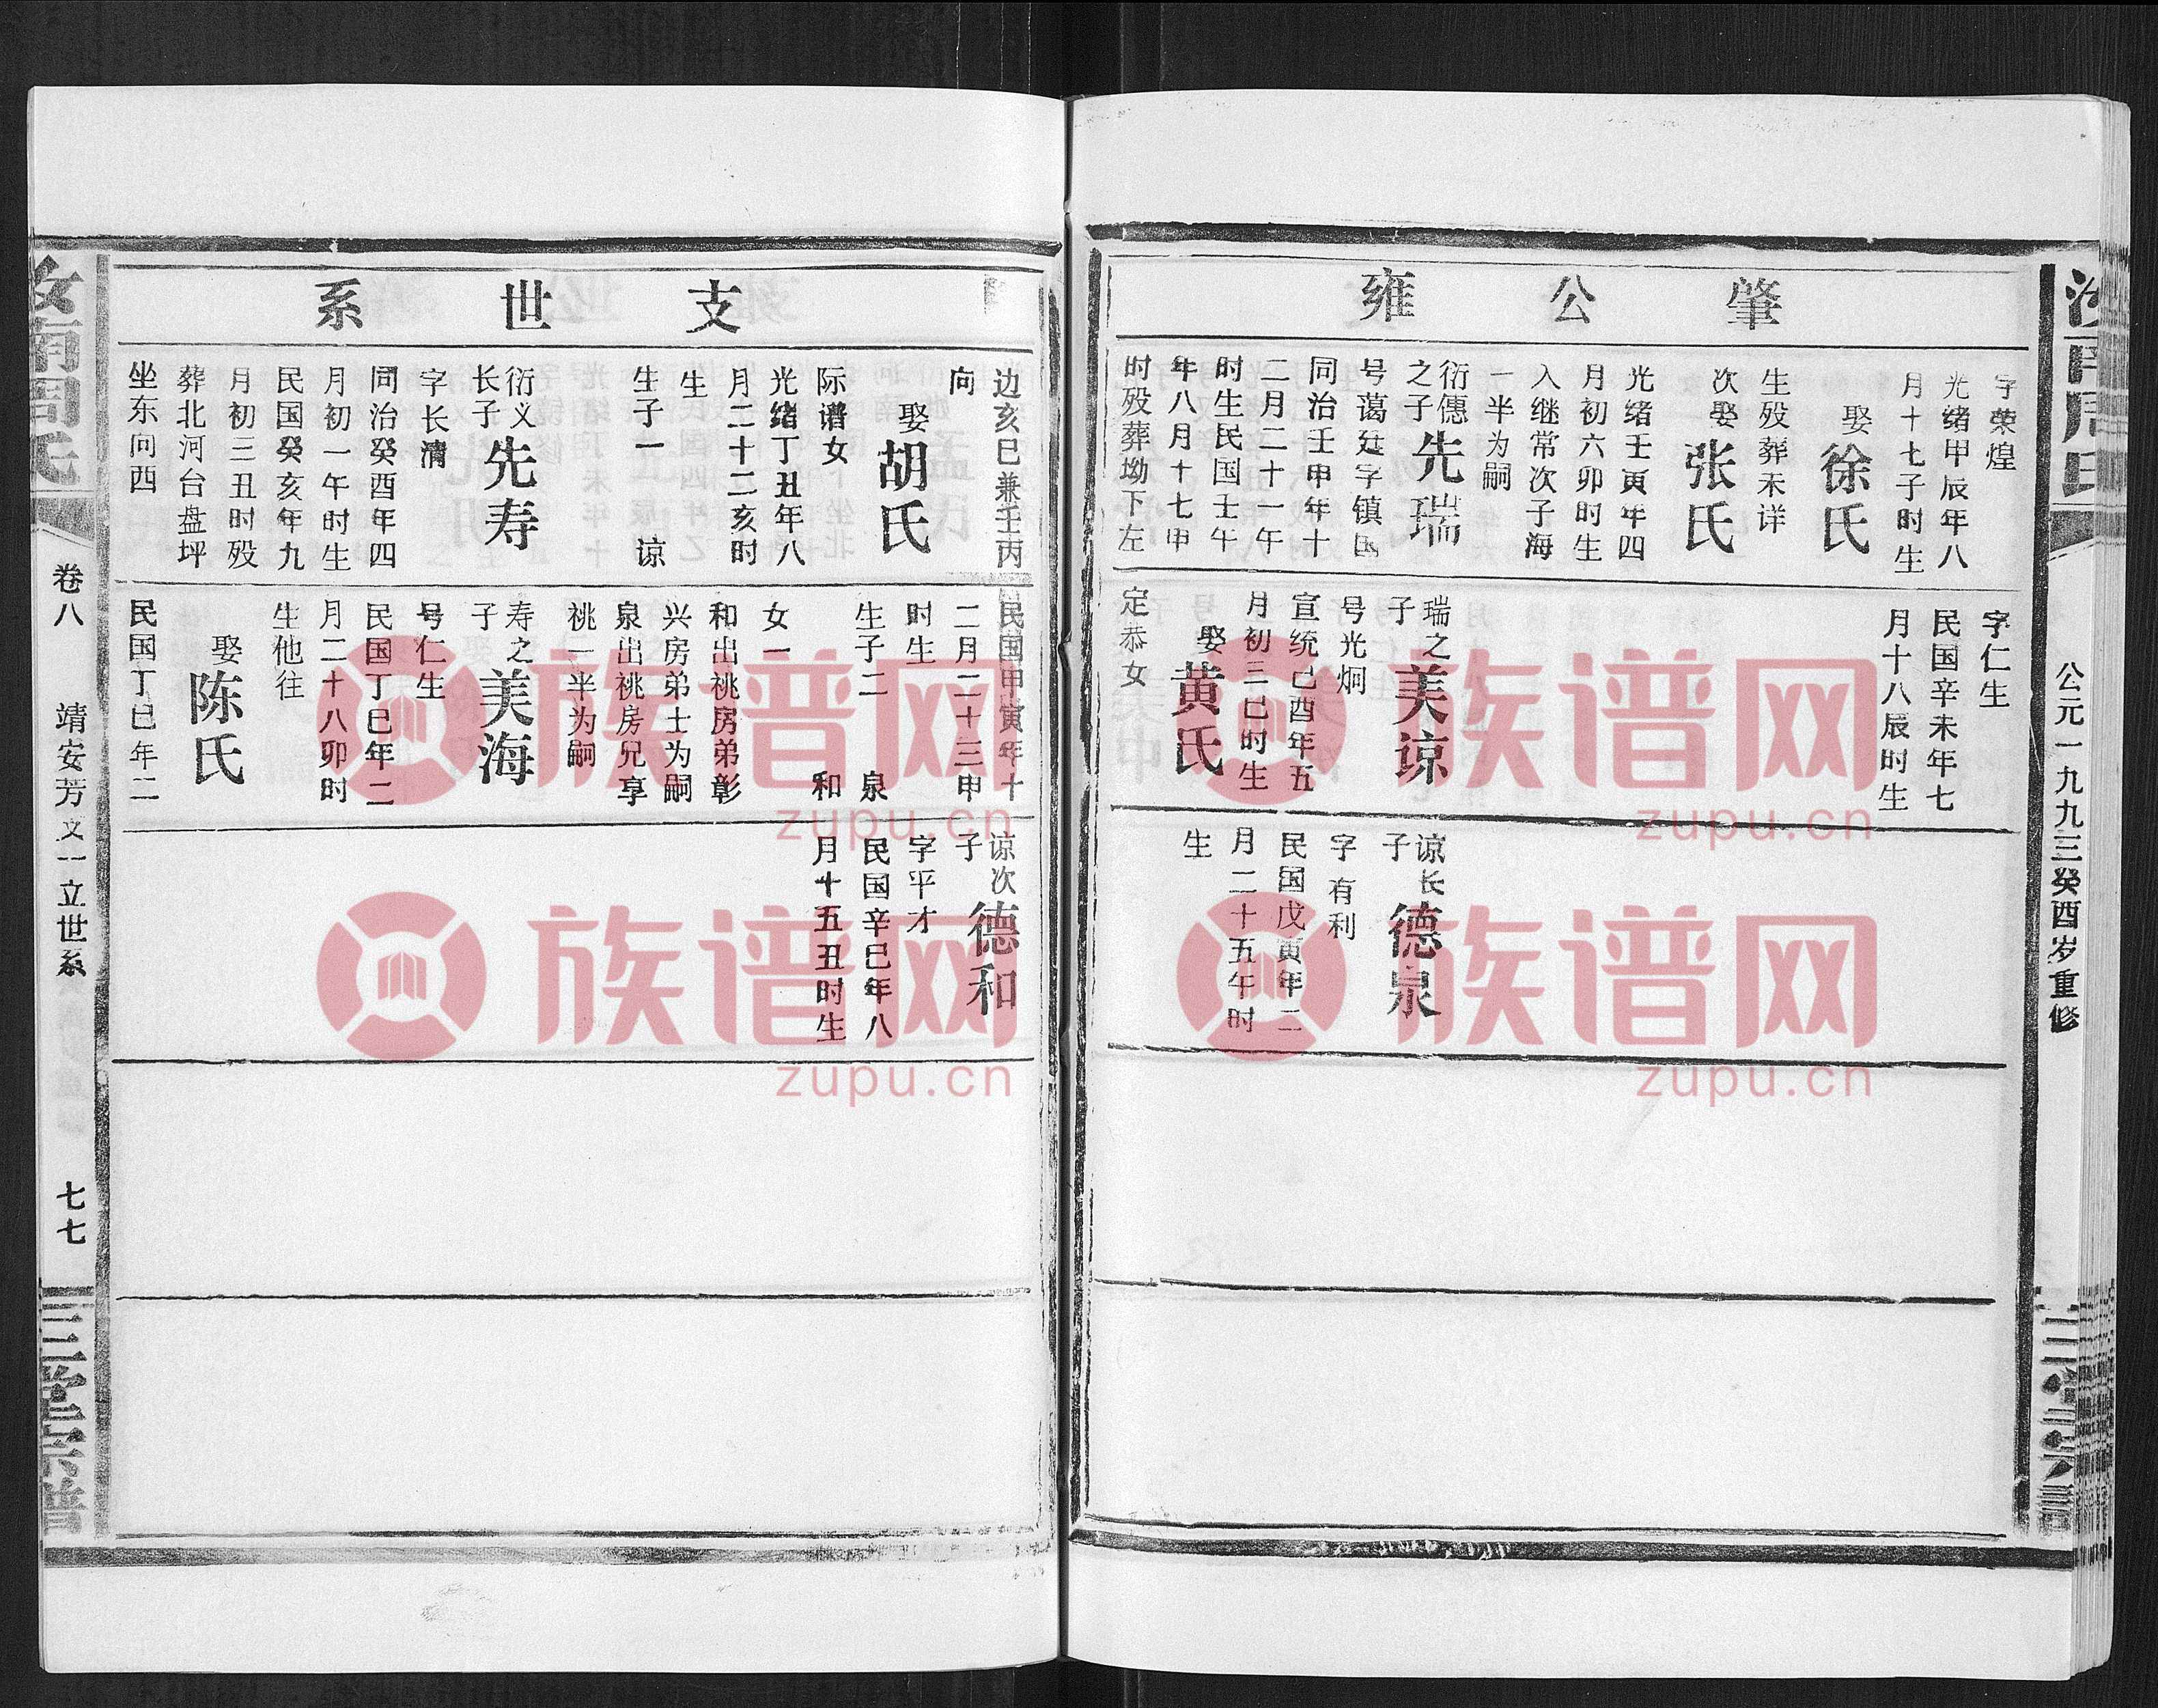 肇公雍
字荣煌
光绪甲辰年八
月十七子时生
娶徐氏
生殁葬未详
次娶张氏
光绪壬寅年四
月初六卯时生
入继常次子海
一半为嗣
衍僡之子先瑞
号蔼廷字镇国
同治壬申年十
二月二十一午
时生民国壬午
年八月十七申
时殁葬坳下左
字仁生
民国辛未年七
月十八辰时生
瑞之子美谅
号光炯
宣统己酉年五
月初三巳时生
娶黄氏
定恭女
谅长子德泉
字有利
民国戊寅年二
月二十五午时
生
公元一九九三癸酉岁重修
支世系
边亥巳兼壬丙
向
娶胡氏
际谱女
光绪丁丑年八
月二十二亥时
生
生子一 谅
衍义长子先寿
字长清
同治癸酉年四
月初一午时生
民国癸亥年九
月初三丑时殁
葬北河台盘坪
坐东向西
民国甲寅年十
二月二十三申
时生
生子二 泉
和
女一
和出祧房弟彰
兴房弟士为嗣
泉出祧房兄享
祧一半为嗣
寿之子美海
号仁生
民国丁巳年二
月二十八卯时
生他往
娶陈氏
民国丁巳年二
谅次子德和
字平才
民国辛巳年八
月十五丑时生
汝南周氏
卷八
靖安芳文一立世系
七七
三堂宗谱
族谱网
zupu.cn
族谱网
zupu.cn
族谱网
zupu.cn
族谱网
zupu.cn